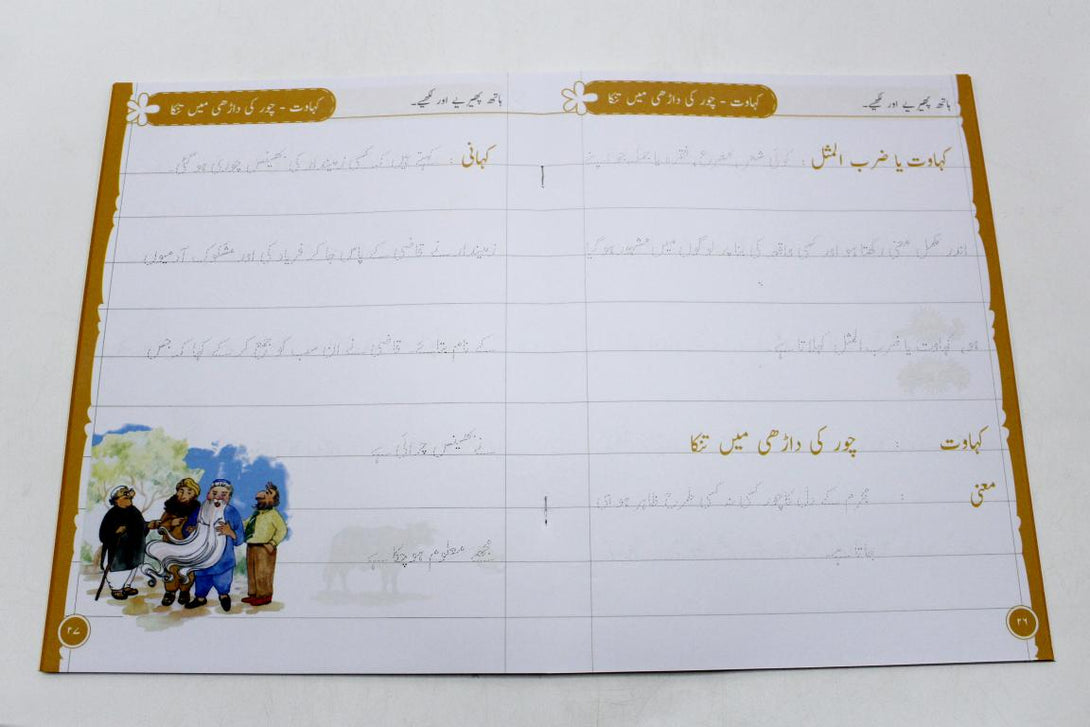 ہاتھ پھیریے اور لکھیے۔
کہاوت - چور کی داڑھی میں تنکا
کہاوت یا ضرب المثل : کوئی شعر، مصرع، فقرہ یا جملہ جو اپنے
اندر مکمل معنی رکھتا ہو اور کسی واقعہ کی بنا پر لوگوں میں مشہور ہو گیا
ہو، کہاوت یا ضرب المثل کہلاتا ہے
کہاوت : چور کی داڑھی میں تنکا
معنی : مجرم کے دل کا چور کسی نہ کسی طرح ظاہر ہو ہی
جاتا ہے۔
۲۶
ہاتھ پھیریے اور لکھیے۔
کہاوت - چور کی داڑھی میں تنکا
کہانی : کہتے ہیں کہ کسی زمیندار کی بھینس چوری ہو گئی۔
زمیندار نے قاضی کے پاس جا کر فریاد کی اور مشکوک آدمیوں
کے نام بتائے۔ قاضی نے ان سب کو جمع کر کے کہا کہ جس
نے بھینس چرائی ہے
مجھے معلوم ہو چکا ہے
۲۷